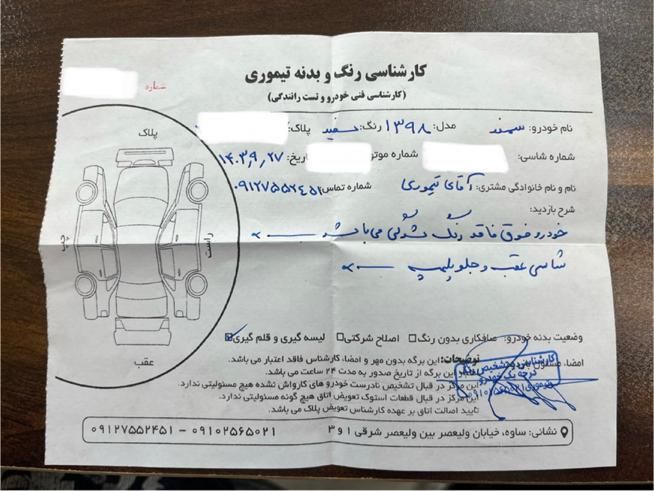 کارشناسی رنگ و بدنه تیموری
(کارشناسی فنی خودرو و تست رانندگی)
شماره
نام خودرو: سمند مدل: ۱۳۹۸ رنگ: سفید پلاک:
شماره شاسی: شماره موتور تاریخ: ۱۴۰۳,۹,۲۷
نام و نام خانوادگی مشتری: آقای تیموری شماره تماس: ۰۹۱۲۷۵۵۲۴۵۱
شرح بازدید:
خودرو فوق فاقد رنگ شدگی می باشد
شاسی عقب و جلو پلمپ
پلاک
چپ
راست
عقب
وضعیت بدنه خودرو: صافکاری بدون رنگ اصلاح شرکتی لیسه گیری و قلم گیری
توضیحات: این برگه بدون مهر و امضاء کارشناس فاقد اعتبار می باشد.
اعتبار این برگه از تاریخ صدور به مدت ۲۴ ساعت می باشد.
این مرکز در قبال تشخیص نادرست خودرو های کارواش نشده هیچ مسئولیتی ندارد.
این مرکز در قبال قطعات استوک تعویض اتاق هیچ گونه مسئولیتی ندارد.
تایید اصالت اتاق بر عهده کارشناس تعویض پلاک می باشد.
امضاء مسئول
کارشناسی و تشخیص رنگ
نشانی: ساوه، خیابان ولیعصر بین ولیعصر شرقی ۱ و ۳ ۰۹۱۰۲۵۶۵۰۲۱ - ۰۹۱۲۷۵۵۲۴۵۱